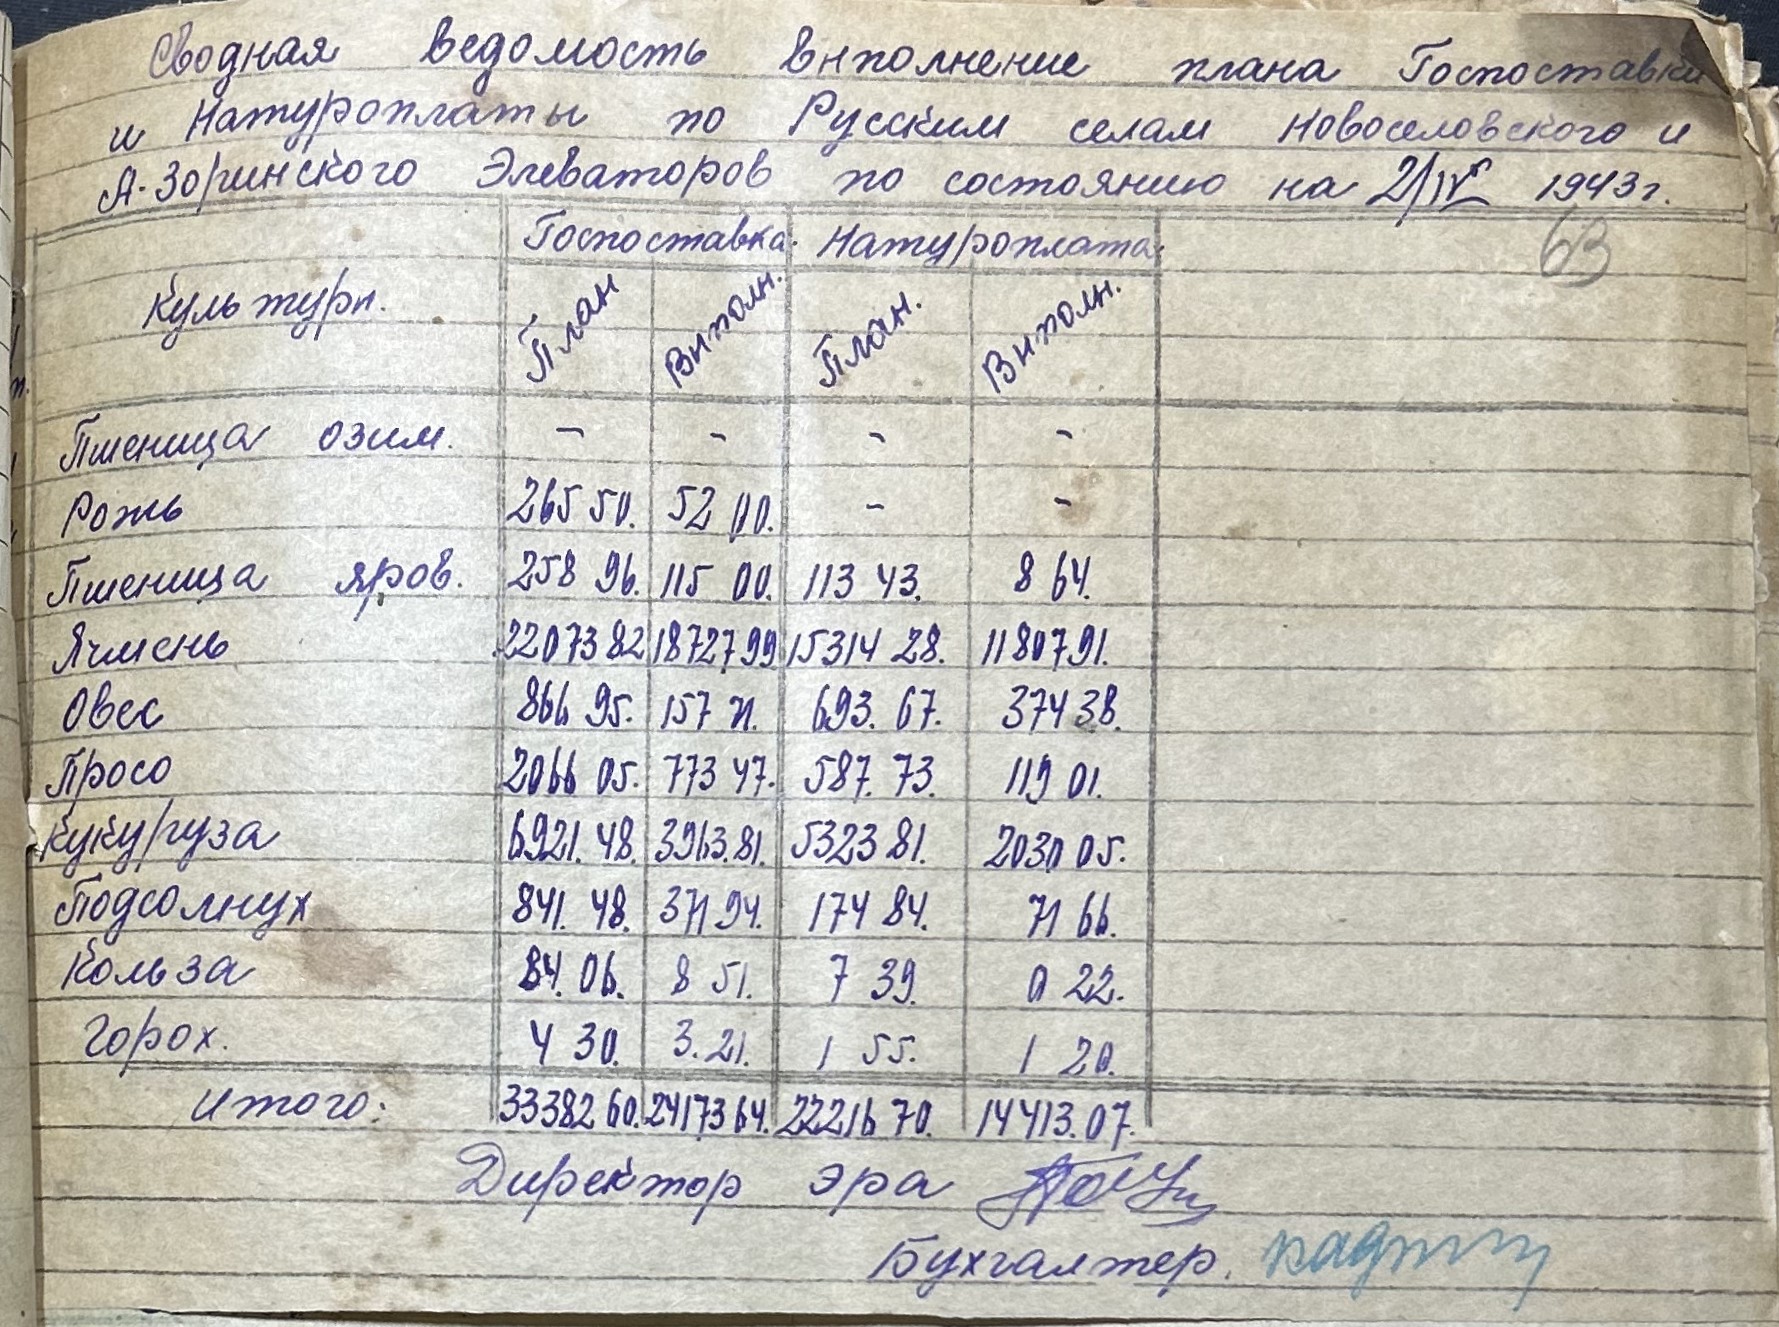 Сводная ведомость выполнение плана Госпоставки
и Натуроплаты по Русским селам Новоселовского и
А-Зоринского Элеваторов по состоянию на 2/IV 1943 г.
63
Культуры. Госпоставка. Натуроплата.
План Выполн. План. Выполн.
Пшеница озим. – – – –
Рожь 265 50. 52 00. – –
Пшеница яров. 258 96. 115 00. 113 43. 8 64.
Ячмень 22073 82 18727 99 15314 28. 11807 91.
Овес 866 95. 157 71. 693. 67. 374 38.
Просо 2066 05. 773 47. 587. 73. 119 01.
Кукуруза 6921. 48. 3963. 81. 5323 81. 2030 05.
Подсолнух 841. 48. 371 94. 174 84. 71 66.
Кольза 84. 06. 8 51. 7 39. 0 22.
Горох. 4 30. 3. 21. 1 55. 1 20.
Итого: 33382 60. 24173 64. 22216 70. 14413. 07.
Директор эра
Бухгалтер.